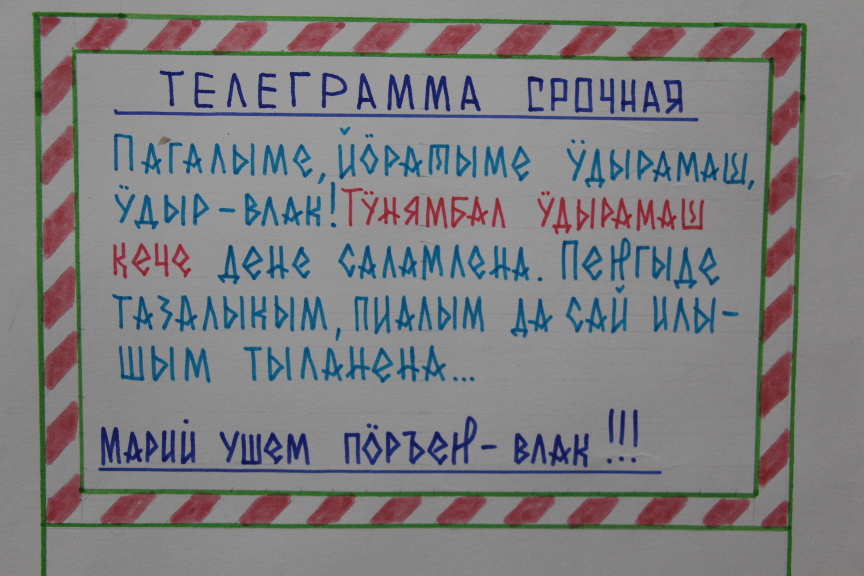 ТЕЛЕГРАММА СРОЧНАЯ
Пагалыме, йӧратыме ӱдырамаш,
ӱдыр-влак! Тӱнямбал ӱдырамаш
кече дене саламлена. Пеҥгыде
тазалыкым, пиалым да сай илы-
шым тыланена...
Марий ушем пӧръеҥ-влак!!!